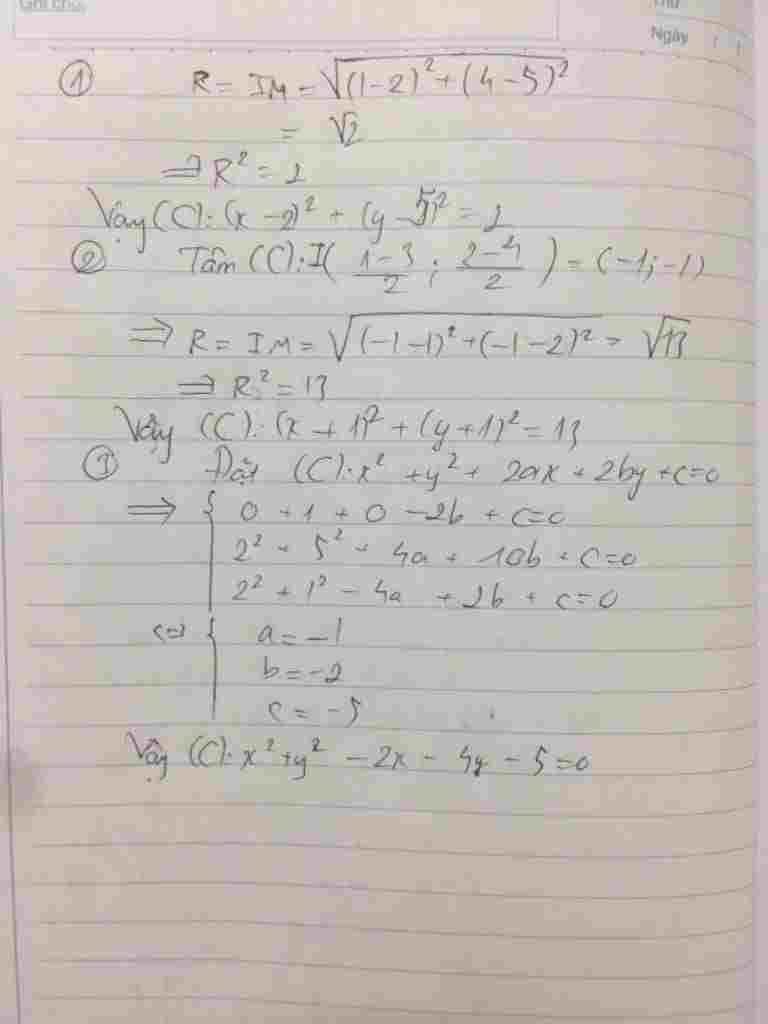 Ghi chú:
Thứ
Ngày
① R = IM = √((1-2)² + (4-5)²)
= √2
⇒ R² = 2
Vậy (C): (x-2)² + (y-5)² = 2
② Tâm (C): I((1-3)/2; (2-4)/2) = (-1; -1)
⇒ R = IM = √((-1-1)² + (-1-2)²) = √13
⇒ R² = 13
Vậy (C): (x+1)² + (y+1)² = 13
③ Đặt (C): x² + y² + 2ax + 2by + c = 0
⇒ { 0 + 1 + 0 - 2b + c = 0
2² + 5² + 4a + 10b + c = 0
2² + 1² - 4a + 2b + c = 0
<=> { a = -1
b = -2
c = -5
Vậy (C): x² + y² - 2x - 4y - 5 = 0